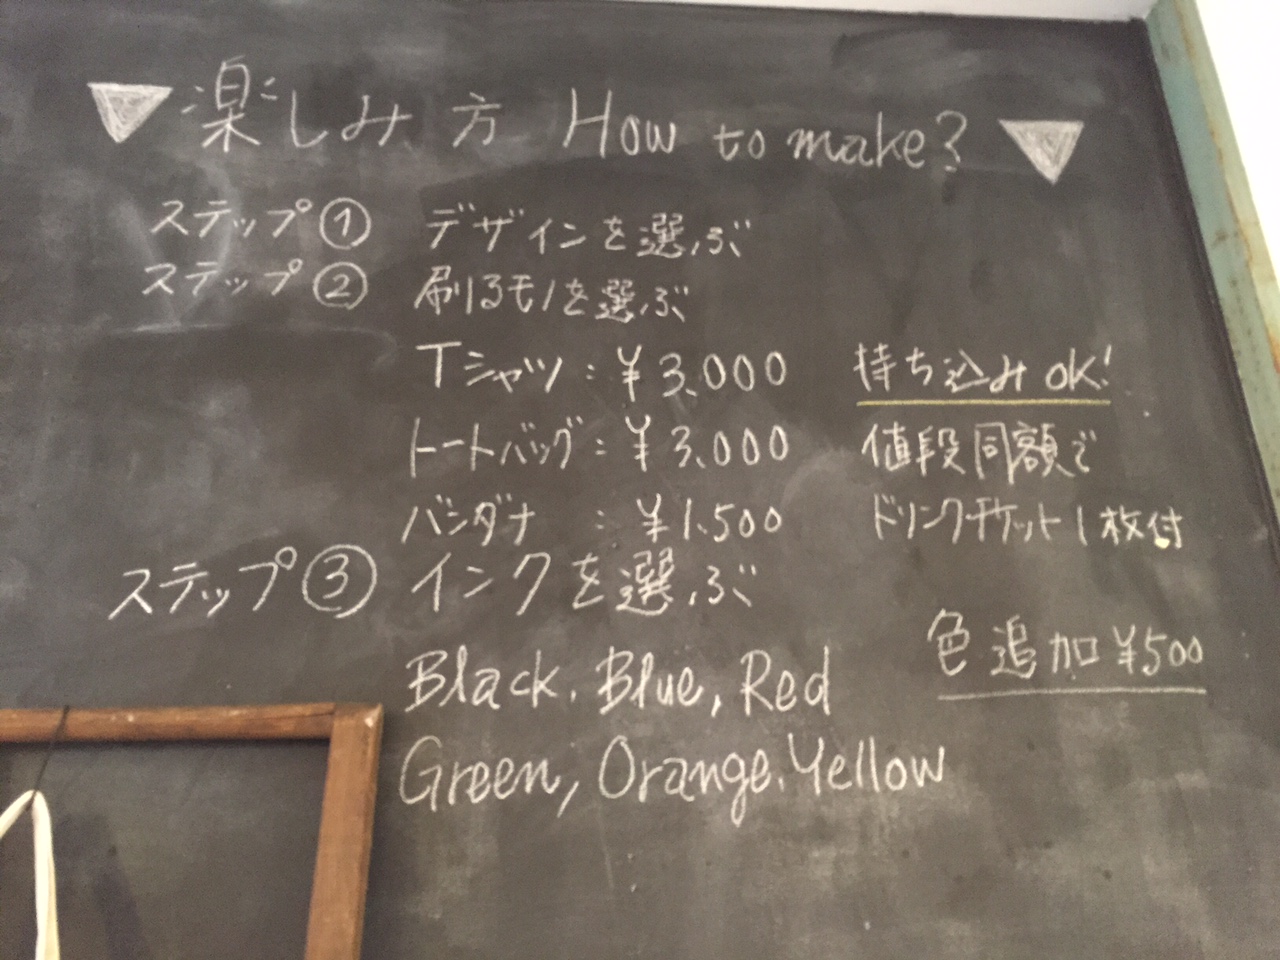 ▼楽しみ方 How to make? ▼
ステップ① デザインを選ぶ
ステップ② 刷るモノを選ぶ
Tシャツ:¥3.000 持ち込みOK!
トートバッグ:¥3.000 値段同額で
バンダナ :¥1.500 ドリンクチケット1枚付
ステップ③ インクを選ぶ
色追加¥500
Black. Blue, Red
Green, Orange. Yellow